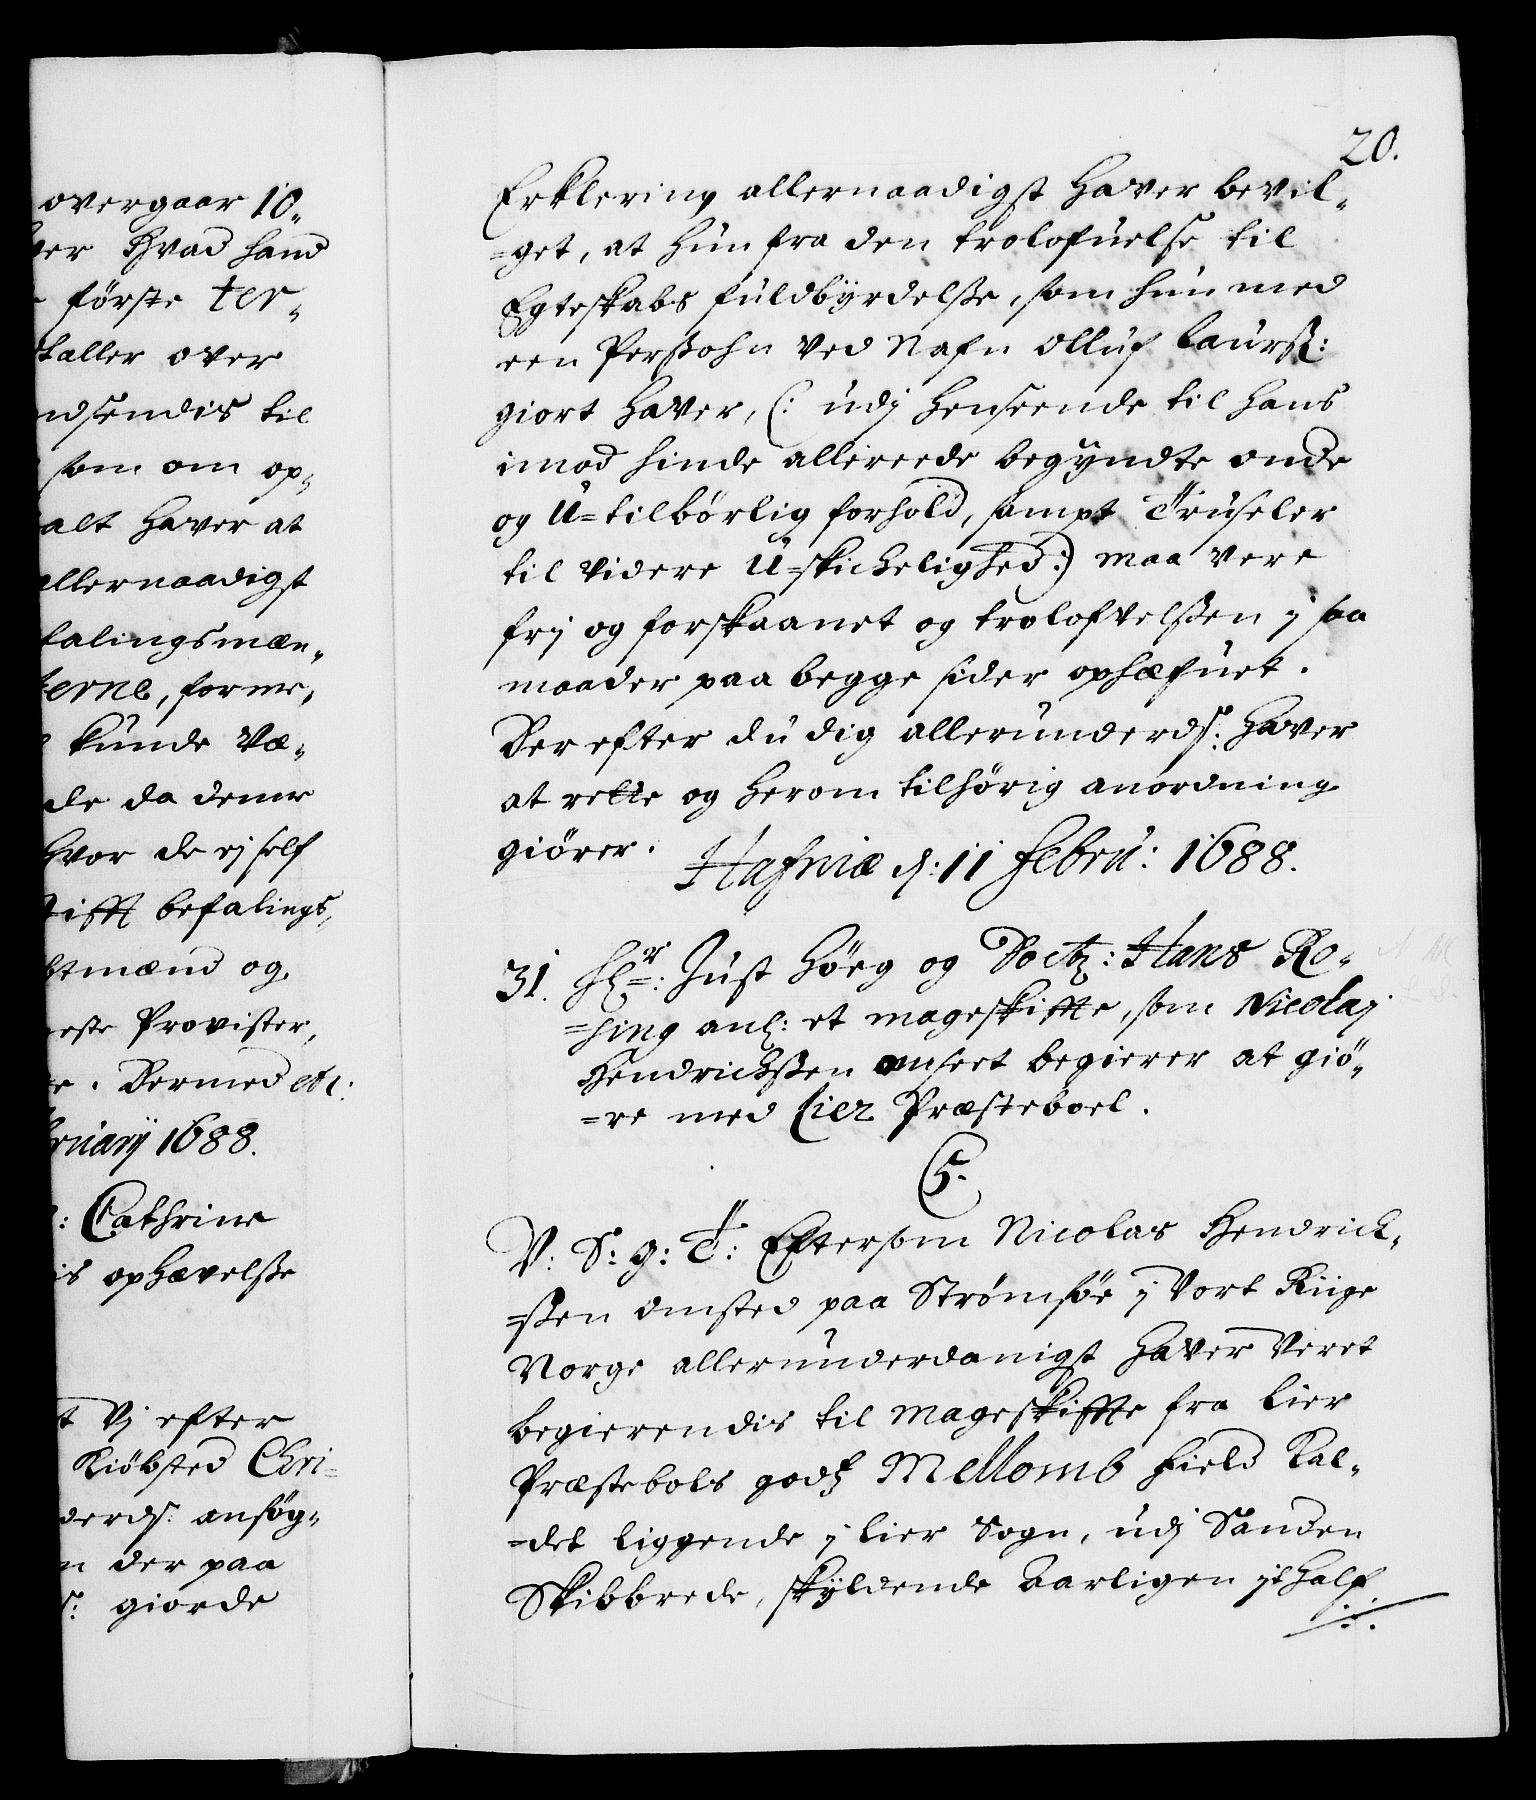 overgaar 10„
Hvad hand
förste ter„
taller over
ndsendis til
som om op„
alt haver at
allernaadigst
talingsmæn„
terne, forme„
kunde Væ„
de da denne
hvor de ej self
tifft befalings„
btmænd og
este Provister,
Dermed etc:
bruarij 1688.
: Cathrine
is ophævelße
Vj efter
Kiöbsted Chri=
derds: ansög„
der paa
giorde
20.
Erklering allernaadigst haver bevil„
=get, at hun fra den trolofuelse til
Egteskabs fuldbyrdelße, som hun med
een Perßohn ved Nafn Olluf Laurß:
giort haver, (: udj henseende til hans
imod hinde allereede begyndte onde
og U=tilbörlig forhold, sampt Truseler
til videre U=skichelighed:) maa vere
frj og forskaanet og trolofvelßen j saa
maader paa begge sider ophæfuet.
Derefter du dig allerunderds: haver
at rette og herom tilhörig anordning
giörer.
Hafniæ d: 11 Febru: 1688.
31. Hr: Just Höeg og Doct: Hans Ro„
=sing anl: et mageskiffte, som Nicolaj
Hendrichßen onseet begierer at giö„
=re med Lier Præsteboel.
C5.
V: S: g: T: Eftersom Nicolas Hendrich„
=ßen onsted paa Strømsöe j Vort Riige
Norge allerunderdanigst haver veret
begierendis til mageskiffte fra Lier
Præstebols gods Mellomb field kal„
=det liggende j Lier Sogn, udj Sanden
Skibbrede, skyldende Aarligen jt half